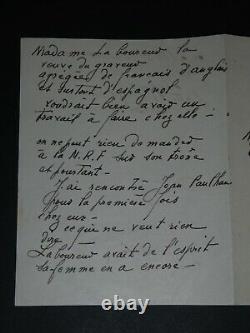 Madame Laboureur la
veuve du graveur
agrégée de français d'anglais
et surtout d'espagnol
voudrait bien avoir un
travail à faire chez elle -
on ne peut rien demander
à la N.R.F sur son trône
et pourtant -
J'ai rencontré Jean Paulhan
pour la première fois
chez eux -
ce qui ne veut rien
dire -
Laboureur avait de l'esprit
sa femme en a encore -